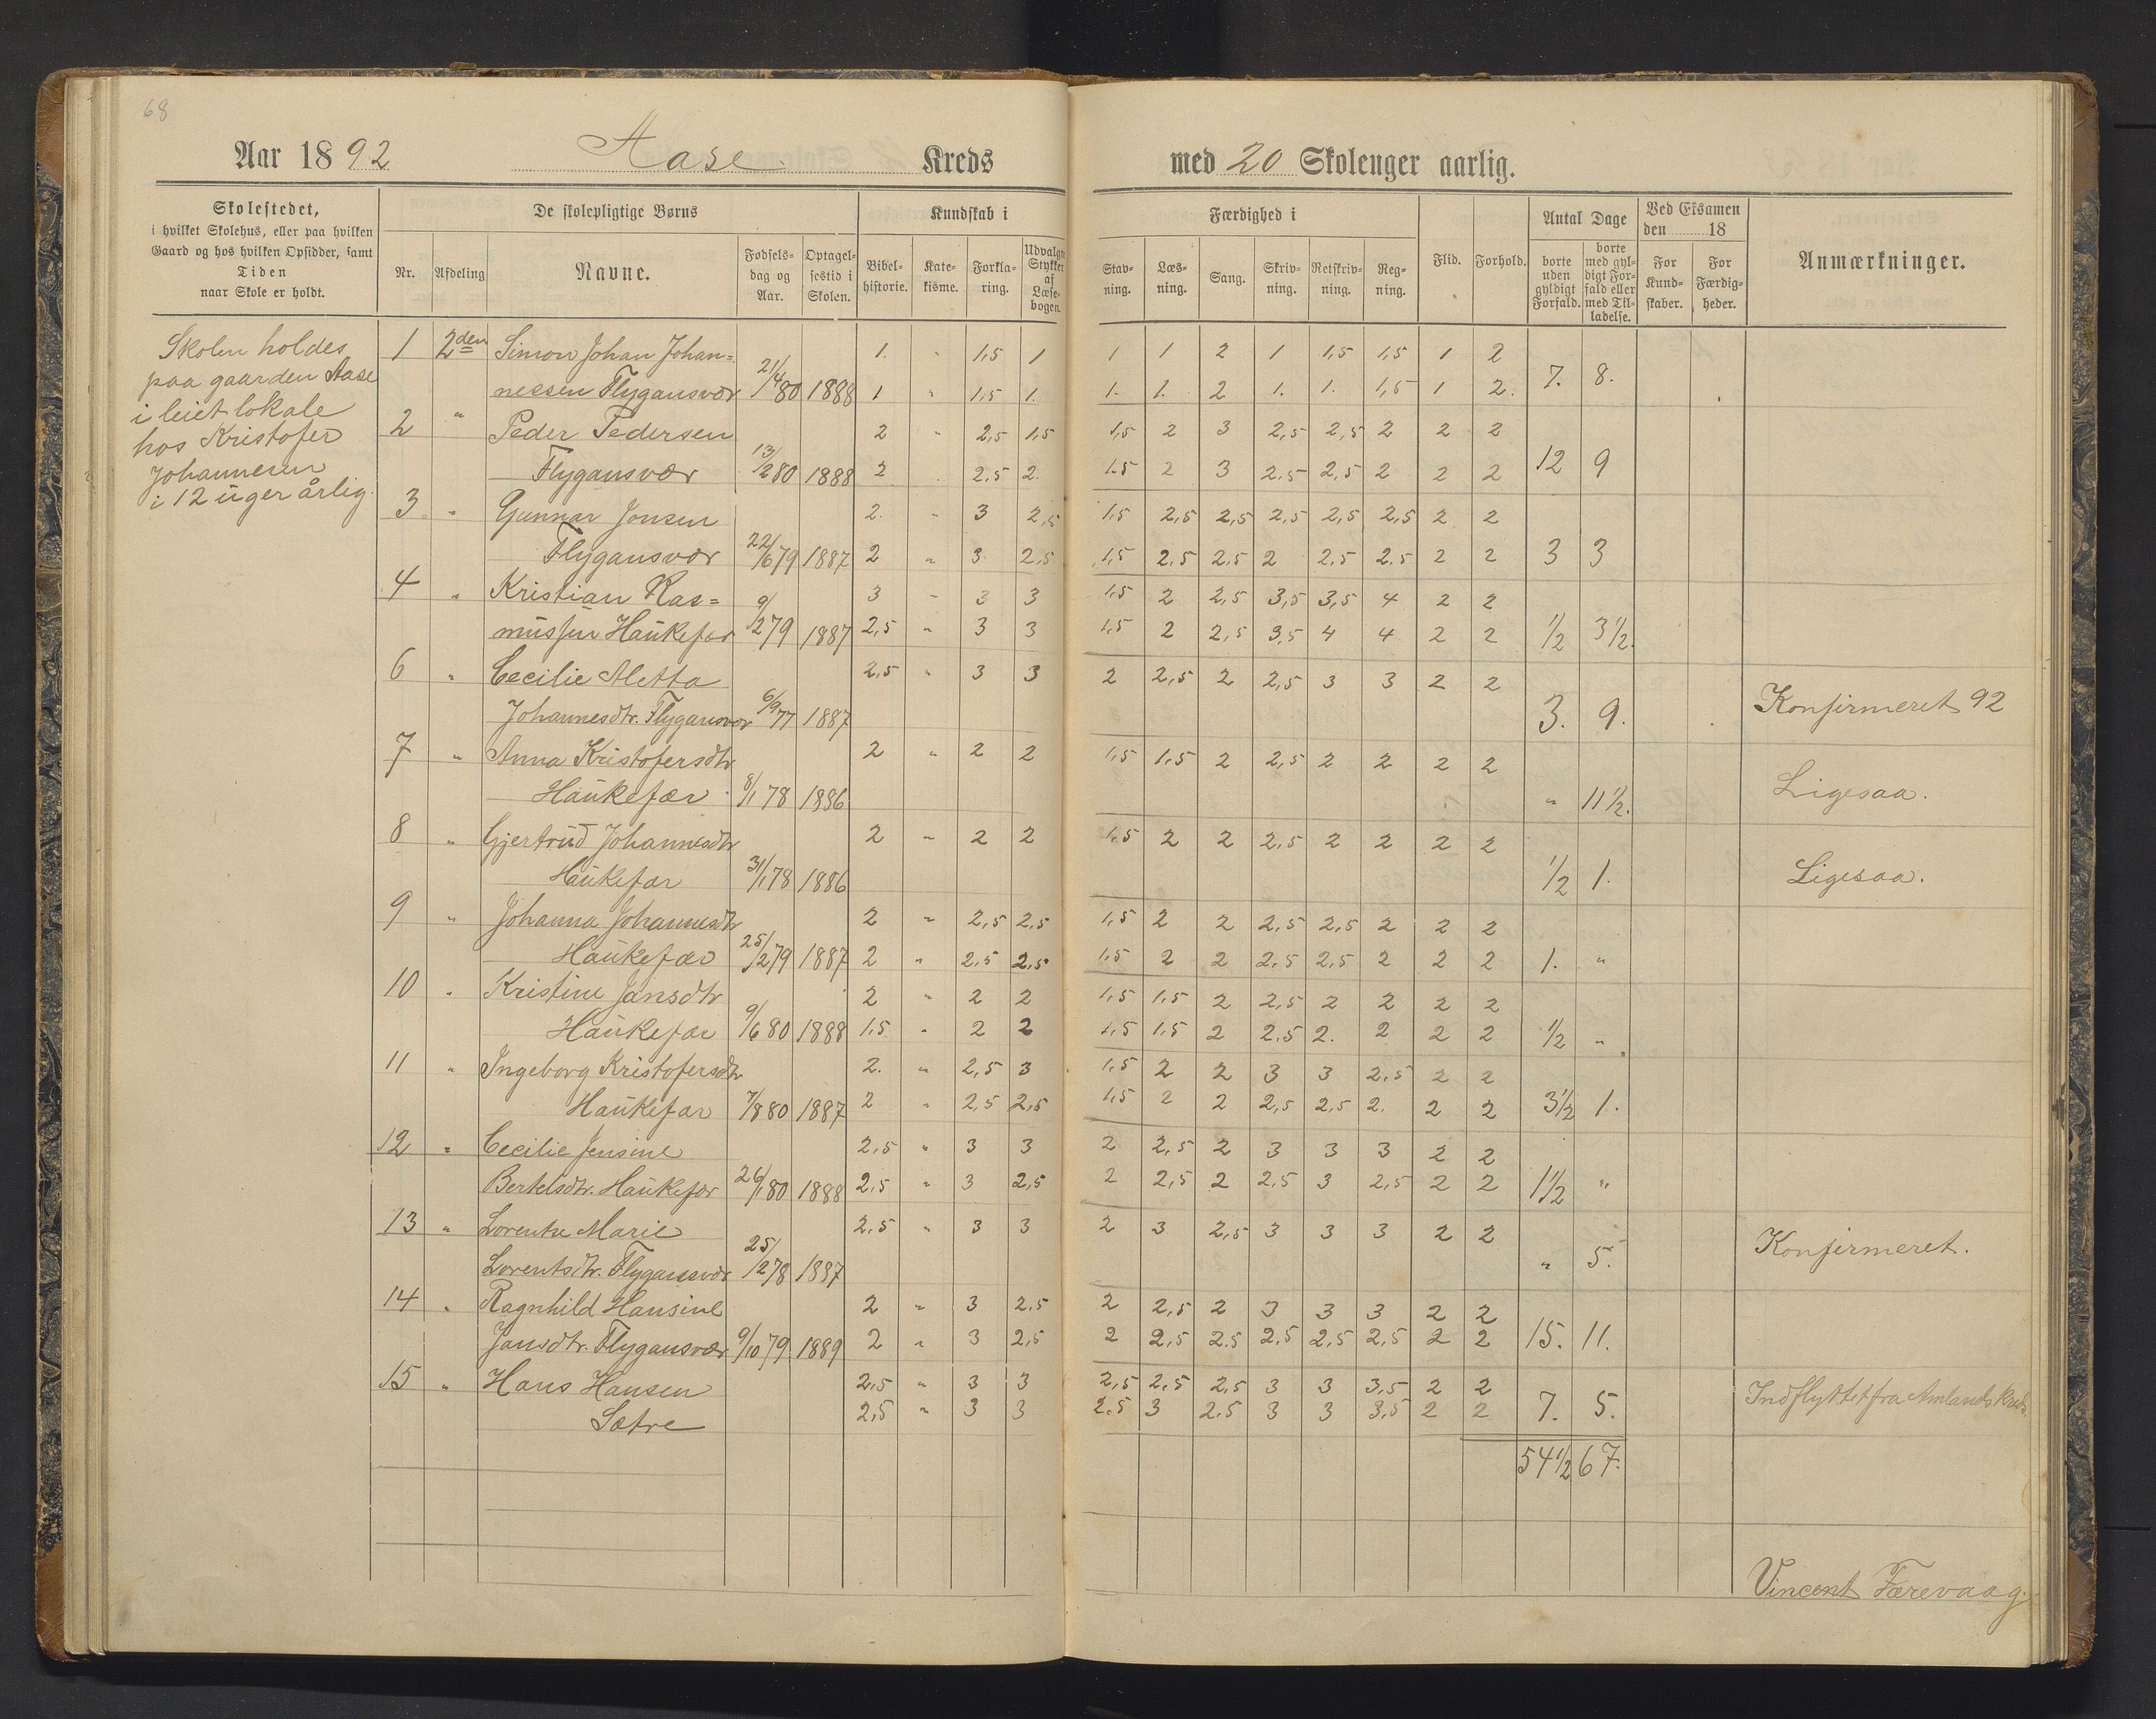 68
Aar 1892 Aase Kreds med 20 Skolenger aarlig.
Skolestedet,
i hvilket Skolehus, eller paa hvilken
Gaard og hos hvilken Opsidder, samt
Tiden
naar Skole er holdt.
De skolepligtige Børns
Nr. Afdeling Navne. Fødselsdag og Aar. Optagelsestid i Skolen.
Kundskab i
Bibelhistorie. Katekisme. Forklaring. Udvalgte Stykker af Læsebogen.
Færdighed i
Stavning. Læsning. Sang. Skrivning. Retskrivning. Regning.
Flid. Forhold.
Antal Dage
borte uden gyldigt Forfald. borte med gyldigt Forfald eller med Tilladelse.
Ved Eksamen den 18
For Kundskaber. For Færdigheder.
Anmærkninger.
Skolen holdes
paa gaarden Aase
i leiet lokale
hos Kristofer
Johannesen
i 12 uger årlig.
1 2den Simon Johan Johan= 1. " 1,5 1 1 1 2 1 1,5 1,5 1 2
nessen Flygansvær 21/4 80 1888 1 " 1,5 1. 1. 1. 2 1. 1. 1,5 1 2. 7. 8.
2 " Peder Pedersen 2 " 2,5 1,5 1,5 2 3 2,5 2,5 2 2 2
Flygansvær 13/2 80 1888 2 2.5 2. 1.5 2 3 2.5 2,5 2 2 2 12 9
3 " Gunnar Jonsen 2. " 3 2,5 1,5 2,5 2,5 2,5 2,5 2,5 2 2
Flygansvær 22/6 79 1887 2 " 3 2,5 1,5 2.5 2.5 2 2.5 2.5 2 2 3 3
4 " Kristian Ras= 3 " 3 3 1,5 2 2,5 3,5 3,5 4 2 2
mussen Haukefær 9/2 79 1887 2,5 " 3 3 1,5 2 2,5 3,5 4 4 2 2 1/2 3 1/2.
6 " Cecilie Aletta 2,5 " 3 3 2 2,5 2 2,5 3 3 2 2
Johannesdtr. Flygansvær 6/9 77 1887 3. 9. Konfirmeret 92
7 " Anna Kristofersdtr 2 " 2 2 1,5 1,5 2 2,5 2 2 2 2
Haukefær 8/1 78 1886 " 11 1/2. Ligesaa.
8 " Gjertrud Johannesdtr 2 " 2 2 1,5 2 2 2,5 2 2 2 2
Haukefær 31/1 78 1886 1/2 1. Ligesaa.
9 " Johanna Johannesdtr 2 " 2,5 2,5 1,5 2 2 2,5 2,5 2 2 2
Haukefær 25/2 79 1887 2 " 2.5 2,5 1,5 2 2 2,5 2,5 2 2 2 1. "
10 " Kristine Jansdtr 2 " 2 2 1,5 1,5 2 2,5 2 2 2 2
Haukefær 9/6 80 1888 1,5 " 2 2 1,5 1,5 2 2.5 2. 2 2 2 1/2 "
11 " Ingeborg Kristofersdtr 2. " 2,5 3 1,5 2 2 3 3 2,5 2 2
Haukefær 7/8 80 1887 2 " 2,5 2,5 1,5 2 2 2,5 2,5 2. 2 2 3 1/2 1.
12 " Cecilie Jensine 2,5 " 3 3 2 2,5 2 3 3 3 2 2
Bertelsdtr. Haukefær 26/1 80 1888 2,5 " 3 2,5 2 2,5 2 2,5 3 2,5 2 2 1 1/2 "
13 " Lorentse Marie 2,5 " 3 3 2 3 2,5 3 3 3 2 2
Lorentsdtr. Flygansvær 25/12 78 1887 " 5. Konfirmeret.
14 " Ragnhild Hansine 2 " 3 2,5 2 2,5 2 3 3 3 2 2
Jansdtr. Flygansvær 9/10 79. 1889 2 " 3 2,5 2 2,5 2.5 2,5 2,5 2,5 2 2 15. 11.
15 " Hans Hansen 2,5 " 3 3 2,5 2,5 2,5 3 3 3,5 2 2
Sætre 2,5 " 3 3 2.5 3 2.5 3 3 3,5 2 2 7. 5. Indflyttet fra Amlands Kreds.
54 1/2 67.
Vincent Færevaag.